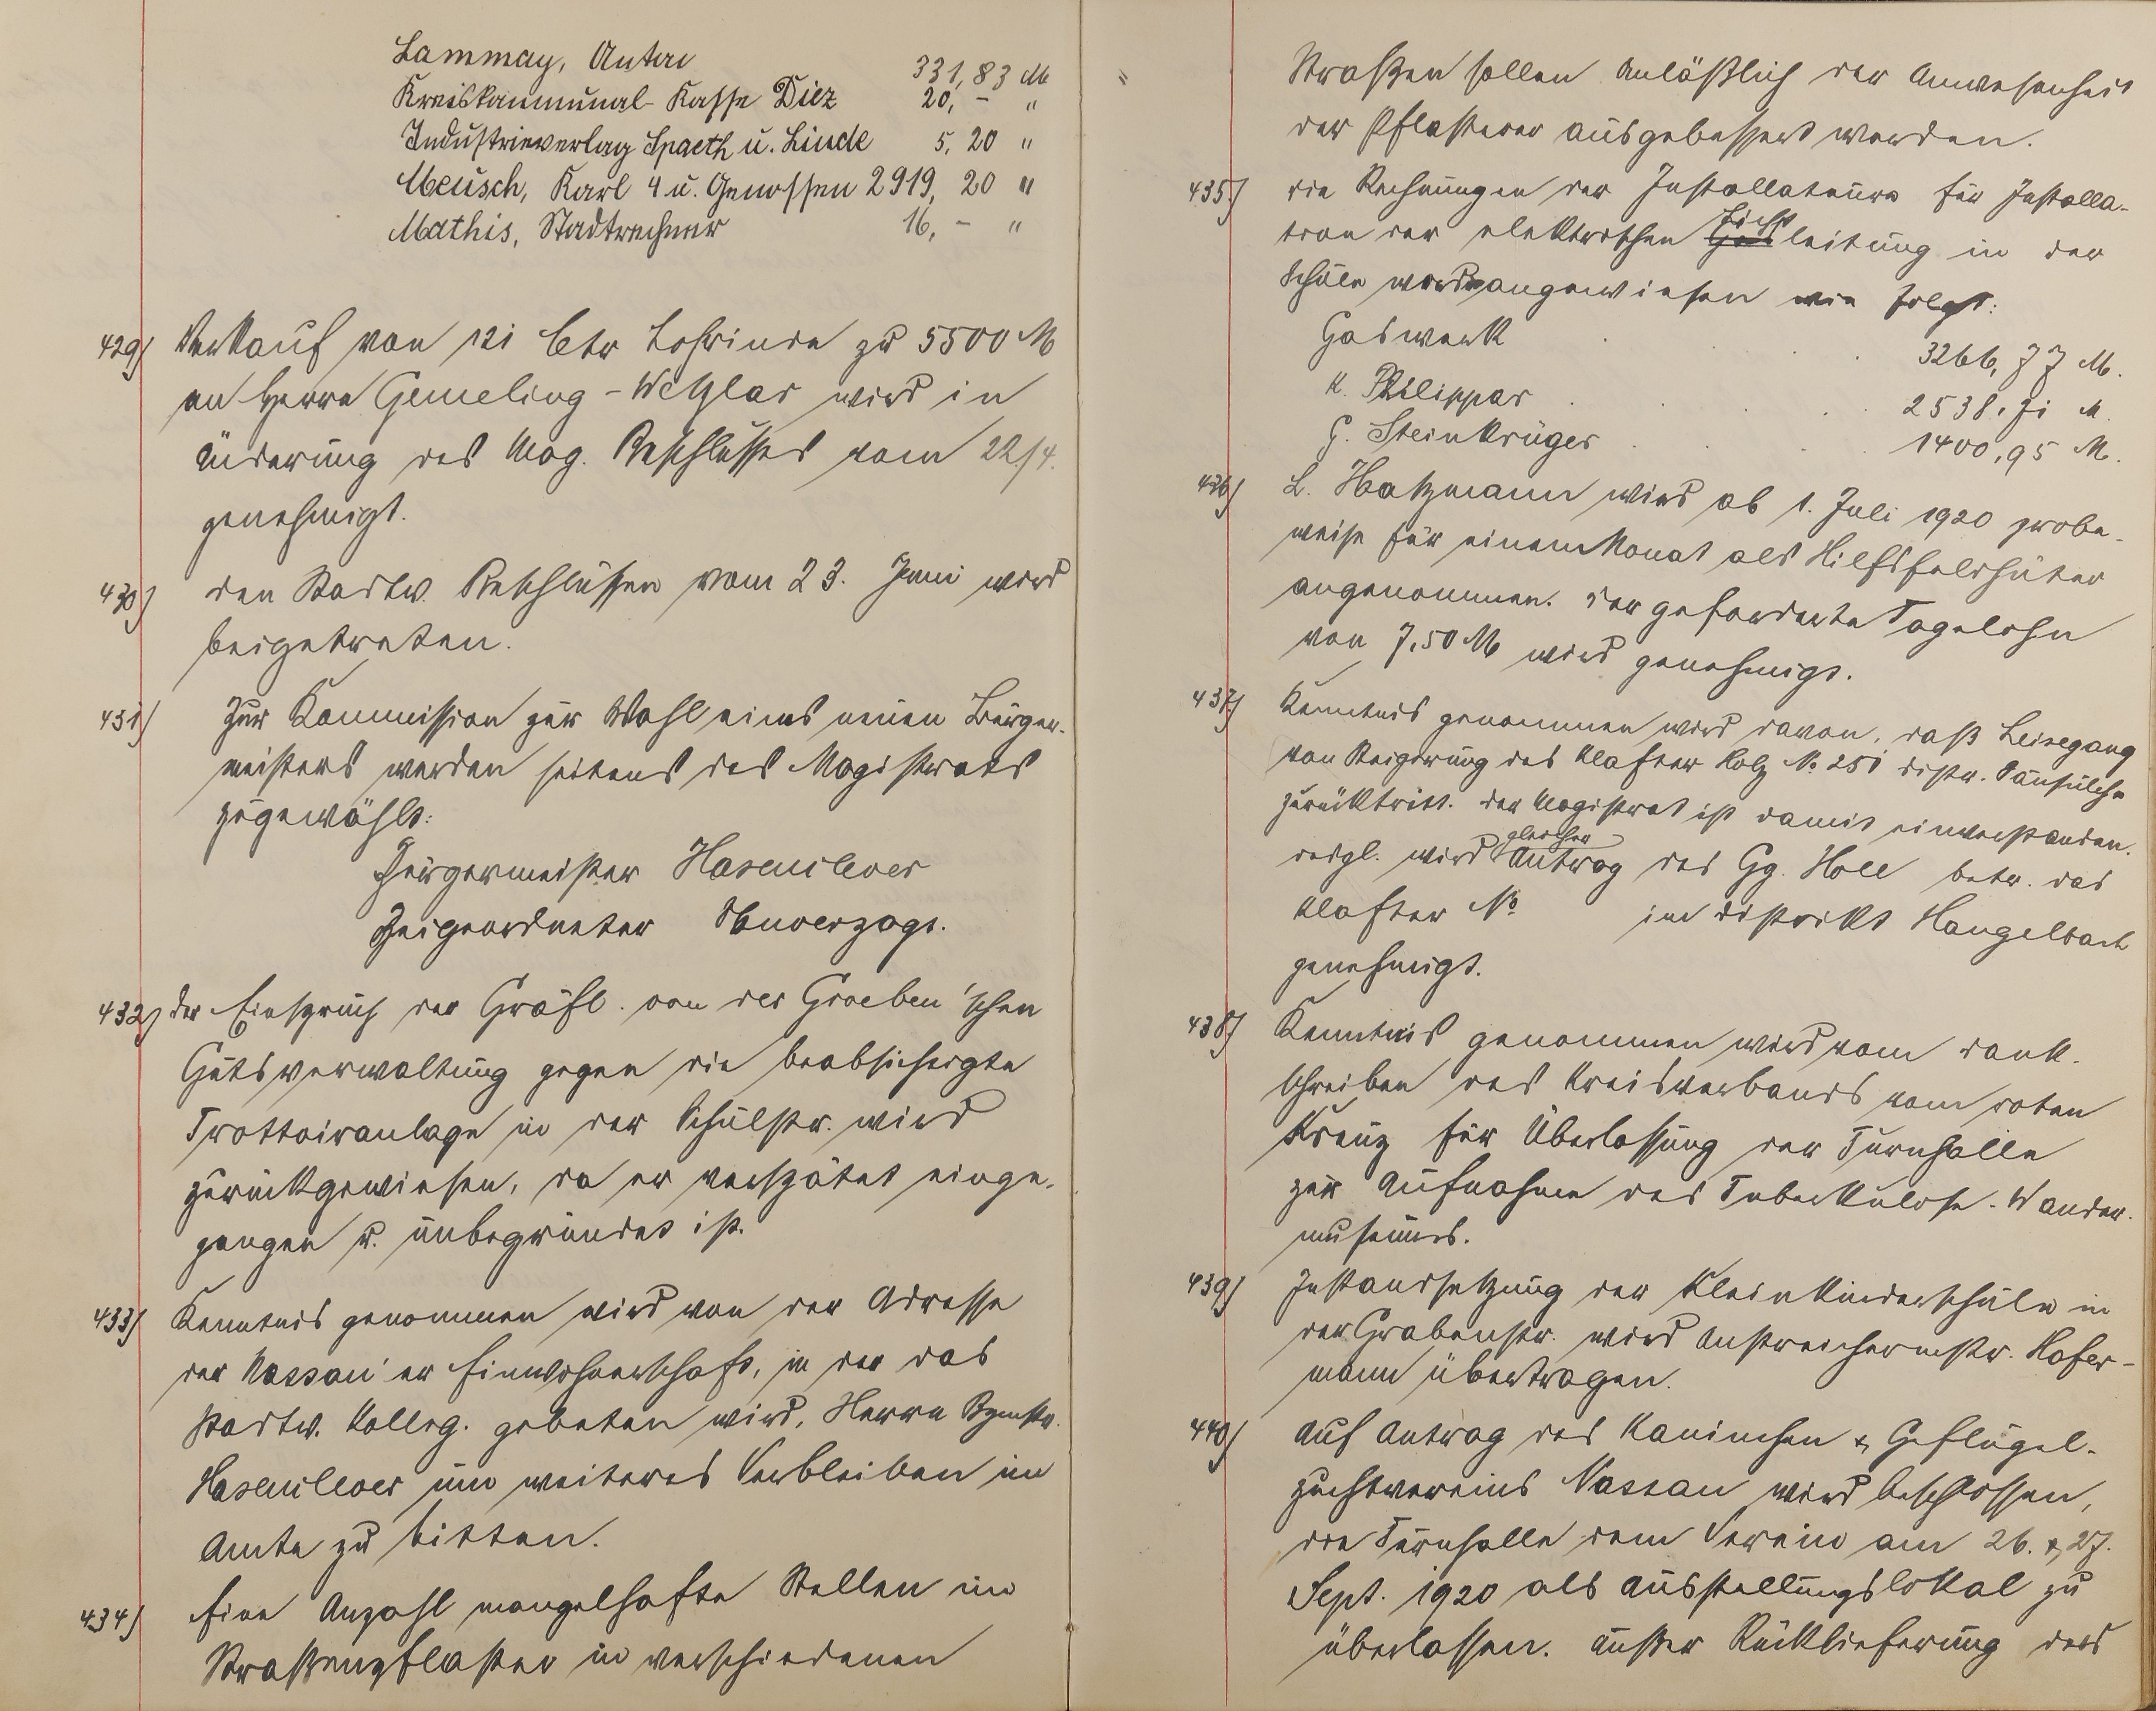 Lammay, Anton 331,83 M
Kreiskommunal-Kasse Diez 20,- "
Industrieverlag Spaeth u. Linde 5,20 "
Meusch, Karl 4 u. Genossen 2919,20 "
Mathis, Stadtrechner 16,- "
429) Verkauf von 121 Ctr Lohrinde zu 5500 M
an Herrn Gemeling-Wetzlar wird in
Änderung des Mag. Beschlusses vom 22/4.
genehmigt.
430) den Stadtv. Beschlüssen vom 23. Juni wird
beigetreten.
431) Zur Kommission zur Wahl eines neuen Bürger-
meisters werden seitens des Magistrats
zugewählt:
Bürgermeister Hasenclever
Beigeordneter Unverzagt.
432) der Einspruch der Gräfl. von der Groeben'schen
Gutsverwaltung gegen die beabsichtigte
Trottoiranlage in der Schulstr. wird
zurückgewiesen, da er verspätet einge-
gangen u. unbegründet ist.
433) Kenntnis genommen wird von der Adresse
der Nassau'er Einwohnerschaft, in der das
Stadtv. Kolleg. gebeten wird, Herrn Bgmstr.
Hasenclever um weiteres Verbleiben im
Amte zu bitten.
434) Eine Anzahl mangelhafte Stellen im
Straßenpflaster in verschiedenen
Straßen sollen anläßlich der Anwesenheit
der Pflasterer ausgebessert werden.
435) die Rechnungen der Installateure für Installa-
tion der elektrischen Lichtleitung in der
Schule werden angewiesen wie folgt:
Gaswerk 3266,77 M.
K. Philippar 2538,71 M.
G. Steinkrüger 1400,95 M.
436) L. Hatzmann wird ab 1. Juli 1920 probe-
weise für einen Monat als Hilfsfeldhüter
angenommen. der geforderte Tagelohn
von 7,50 M wird genehmigt.
437) Kenntnis genommen wird davon, daß Leisegang
von Steigerung des Klafter Holz No. 251 distr.
zurücktritt. der Magistrat ist damit einverstanden.
desgl. wird gleicher Antrag des Gg. Holl betr. das
Klafter No im distrikt Hangelbach
genehmigt.
438) Kenntnis genommen wird vom dank-
schreiben des Kreisverbands vom roten
Kreuz für Überlassung der Turnhalle
zur Aufnahme des Tuberkulose-Wander-
museums.
439) Instandsetzung der Kleinkinderschule in
der Grabenstr. wird Anstreichermstr. Hofer-
mann übertragen.
440) Auf Antrag des Kaninchen & Geflügel-
zuchtvereins Nassau wird beschlossen,
die Turnhalle dem Verein am 26. & 27.
Sept. 1920 als Ausstellungslokal zu
überlassen. Außer Rücklieferung des